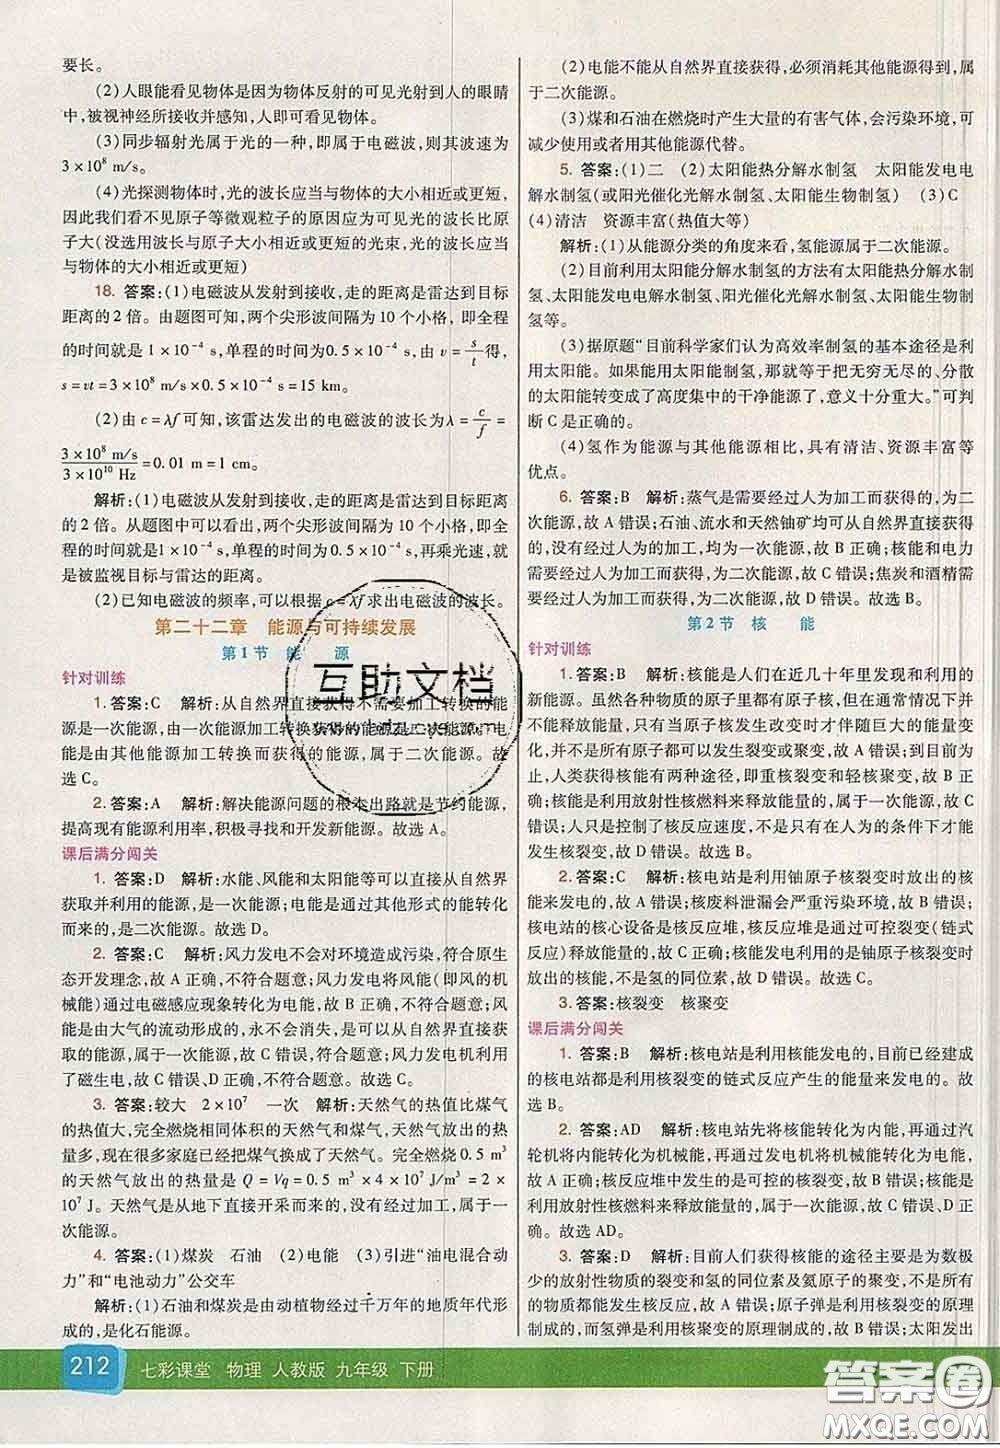 要长。
(2)人眼能看见物体是因为物体反射的可见光射到人的眼睛
中,被视神经所接收并感知,人即可看见物体。
(3)同步辐射光属于光的一种,即属于电磁波,故其速度为
3×10⁸ m/s。
(4)光探测物体时,光的波长应当与物体的大小相近或更短,
因此我们看不见原子等微观粒子的原因应为可见光的波长比原
子大(没选用波长与原子大小相近或更短的光束,光的波长应当
与物体的大小相近或更短)
18. 答案:(1)电磁波从发射到接收,走的距离是雷达到目标
距离的2倍。由题图可知,两个尖形波间隔为10个小格,即全程
的时间就是1×10⁻⁴ s,单程的时间为0.5×10⁻⁴ s,由v=s/t得,
s=vt=3×10⁸ m/s×0.5×10⁻⁴ s=15 km。
(2)由c=λf可知,该雷达发出的电磁波的波长为λ=c/f=
3×10⁸ m/s/3×10¹⁰ Hz=0.01 m=1 cm。
解析:(1)电磁波从发射到接收,走的距离是雷达到目标距离
的2倍。从题图中可以看出,两个尖形波间隔为10个小格,即全
程的时间就是1×10⁻⁴ s,单程的时间为0.5×10⁻⁴ s,再乘光速,就
是被监视目标与雷达的距离。
(2)已知电磁波的频率,可以根据c=λf求出电磁波的波长。
第二十二章 能源与可持续发展
第1节 能 源
针对训练
1. 答案:C 解析:从自然界直接获得不需要加工转换的能
源是一次能源,由一次能源加工转换获得的能源是二次能源,电
能是由其他能源加工转换而获得的能量,属于二次能源。故
选C。
2. 答案:A 解析:解决能源问题的根本出路就是节约能源,
提高现有能源利用率,积极寻找和开发新能源。故选A。
课后满分闯关
1. 答案:D 解析:水能、风能和太阳能等可以直接从自然界
获取并利用的能源,是一次能源;电能是通过其他形式的能转化
而来的,是二次能源。故选D。
2. 答案:C 解析:风力发电不会对环境造成污染,符合原生
态开发理念,故A正确,不符合题意;风力发电将风能(即风的机
械能)通过电磁感应现象转化为电能,故B正确,不符合题意;风
能是由大气的流动形成的,永不会消失,是可以从自然界直接获
取的能源,属于一次能源,故C错误,符合题意;风力发电机利用
了磁生电,故D正确,不符合题意。故选C。
3. 答案:较大 2×10⁷ 一次 解析:天然气的热值比煤气
的热值大,完全燃烧相同体积的天然气和煤气,天然气放热更多,
因此很多家庭已经把煤气换成了天然气。完全燃烧0.5 m³
的天然气放出的热量是Q=Vq=0.5 m³×4×10⁷ J/m³=2×
10⁷ J。天然气是从地下直接开采而来的,没有经过加工,属于一
次能源。
4. 答案:(1)煤炭 石油 (2)电能 (3)引进“油电混合动
力”和“电池动力”公交车
解析:(1)石油和煤炭是由动植物经过千万年的地质年代形
成的,是化石能源。
(2)电能不能从自然界直接获得,必须消耗其他能源得到,属
于二次能源。
(3)煤和石油在燃烧时产生大量的有害气体,会污染环境,可
减少使用或者用其他能源代替。
5. 答案:(1)二 (2)太阳能热分解水制氢 太阳能发电电
解水制氢(或阳光催化光解水制氢、太阳能生物制氢) (3)C
(4)清洁 资源丰富(热值大等)
解析:(1)从能源分类的角度来看,氢能源属于二次能源。
(2)目前利用太阳能分解水制氢的方法有太阳能热分解水制
氢、太阳能发电电解水制氢、阳光催化光解水制氢、太阳能生物制
氢等。
(3)据原题“目前科学家们认为高效率制氢的基本途径是利
用太阳能。如果能用太阳能制氢,那就等于把无穷无尽的、分散
的太阳能转变成了高度集中的干净能源了,意义十分重大。”可
判断C是正确的。
(4)氢作为能源与其他能源相比,具有清洁、资源丰富等
优点。
6. 答案:B 解析:蒸气是需要经过人为加工而获得的,为二
次能源,故A错误;石油、流水和天然铀矿均可从自然界直接获得
的,没有经过人为的加工,均为一次能源,故B正确;核能和电力
需要人为加工而获得,为二次能源,故C错误;焦炭和酒精需要经
过人为加工而获得,为二次能源,故D错误。故选B。
第2节 核 能
针对训练
1. 答案:B 解析:核能是人们在近几十年里发现和利用的
新能源。虽然各种物质的原子里都有原子核,但在通常情况下并
不能释放能量,只有当原子核发生改变时才伴随巨大的能量变
化,并不是所有原子都可以发生裂变或聚变,故A错误;到目前为
止,人类获得核能有两种途径,即重核裂变和轻核聚变,故B正
确;核能是利用放射性核燃料来释放能量的,不是机械能,故C
错误;人只是控制了核反应速度,不是只有在人为的条件下才能
发生核裂变,故D错误。故选B。
2. 答案:C 解析:核电站是利用铀原子核裂变时放出的核
能来发电的,故A错误;核废料泄漏会严重污染环境,故B错误;
核电站的核心设备是核反应堆,核反应堆是通过可控裂变(链式
反应)释放能量的,故C正确;核能发电利用的是铀原子核裂变放
出的核能,不是氢的同位素,故D错误。故选C。
3. 答案:核裂变 核聚变
课后满分闯关
1. 答案:B 解析:核电站是利用核能发电的,目前已经建成
的核电站都是利用核裂变的链式反应产生的能量来发电的。故
选B。
2. 答案:AD 解析:核电站先将核能转化为内能,再通过汽
轮机将内能转化为机械能,再通过发电机将机械能转化为电能,
故A正确;核反应堆中发生的是可控的核裂变,故B错误;核能是
利用放射性核燃料来释放能量的,而不是化学能,故C错误,D正
确。故选AD。
3. 答案:D 解析:目前人们获得核能的途径主要是为数极
少的放射性物质的裂变和氢的同位素及氦原子的聚变,并非所有
的物质都能发生核反应,故A错误;原子弹是利用核裂变的原理
制成的,而氢弹则是利用核聚变的原理制成的,故B错误;太阳发出
212 七彩课堂 物理 人教版 九年级 下册
互助文档
答案圈
MXQE.COM